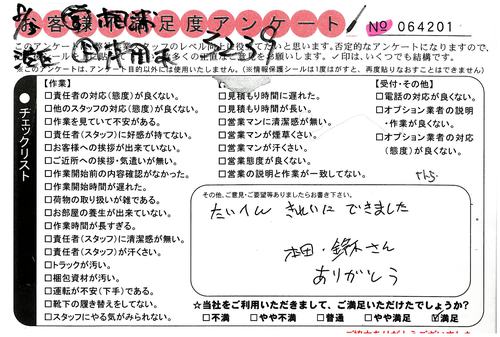 お客様満足度アンケート
No 064201
2239
※このアンケートは、アンケート目的以外には使用いたしません。(※情報保護シールは1度はがすと、再度貼りなおすことはできません)
チェックリスト
【作業】
□責任者の対応(態度)が良くない。
□他のスタッフの対応(態度)が良くない。
□作業を見ていて不安がある。
□責任者(スタッフ)に好感が持てない。
□お客様への挨拶が出来ていない。
□ご近所への挨拶・気遣いが無い。
□作業開始前の内容確認がなかった。
□作業開始時間が遅れた。
□荷物の取り扱いが雑である。
□お部屋の養生が出来ていない。
□作業時間が長すぎる。
□責任者(スタッフ)に清潔感が無い。
□責任者(スタッフ)が汗くさい。
□トラックが汚い。
□梱包資材が汚い。
□運転が不安(下手)である。
□靴下の履き替えをしてない。
□スタッフにやる気がみられない。
□見積もり時間に遅れた。
□見積もり時間が長い。
□営業マンに清潔感が無い。
□営業マンが煙草くさい。
□営業マンが汗くさい。
□営業態度が良くない。
□営業の説明と作業が一致してない。
【受付・その他】
□電話の対応が良くない。
□オプション業者の説明
・作業が良くない。
□オプション業者の対応
(態度)が良くない。
その他、ご意見・ご要望等ありましたらお書き下さい。
たいへん きれいに できました
本田・鈴木さん
ありがとう
☆当社をご利用いただきまして、ご満足いただけたでしょうか?
□不満 □やや不満 □普通 □やや満足 ☑満足